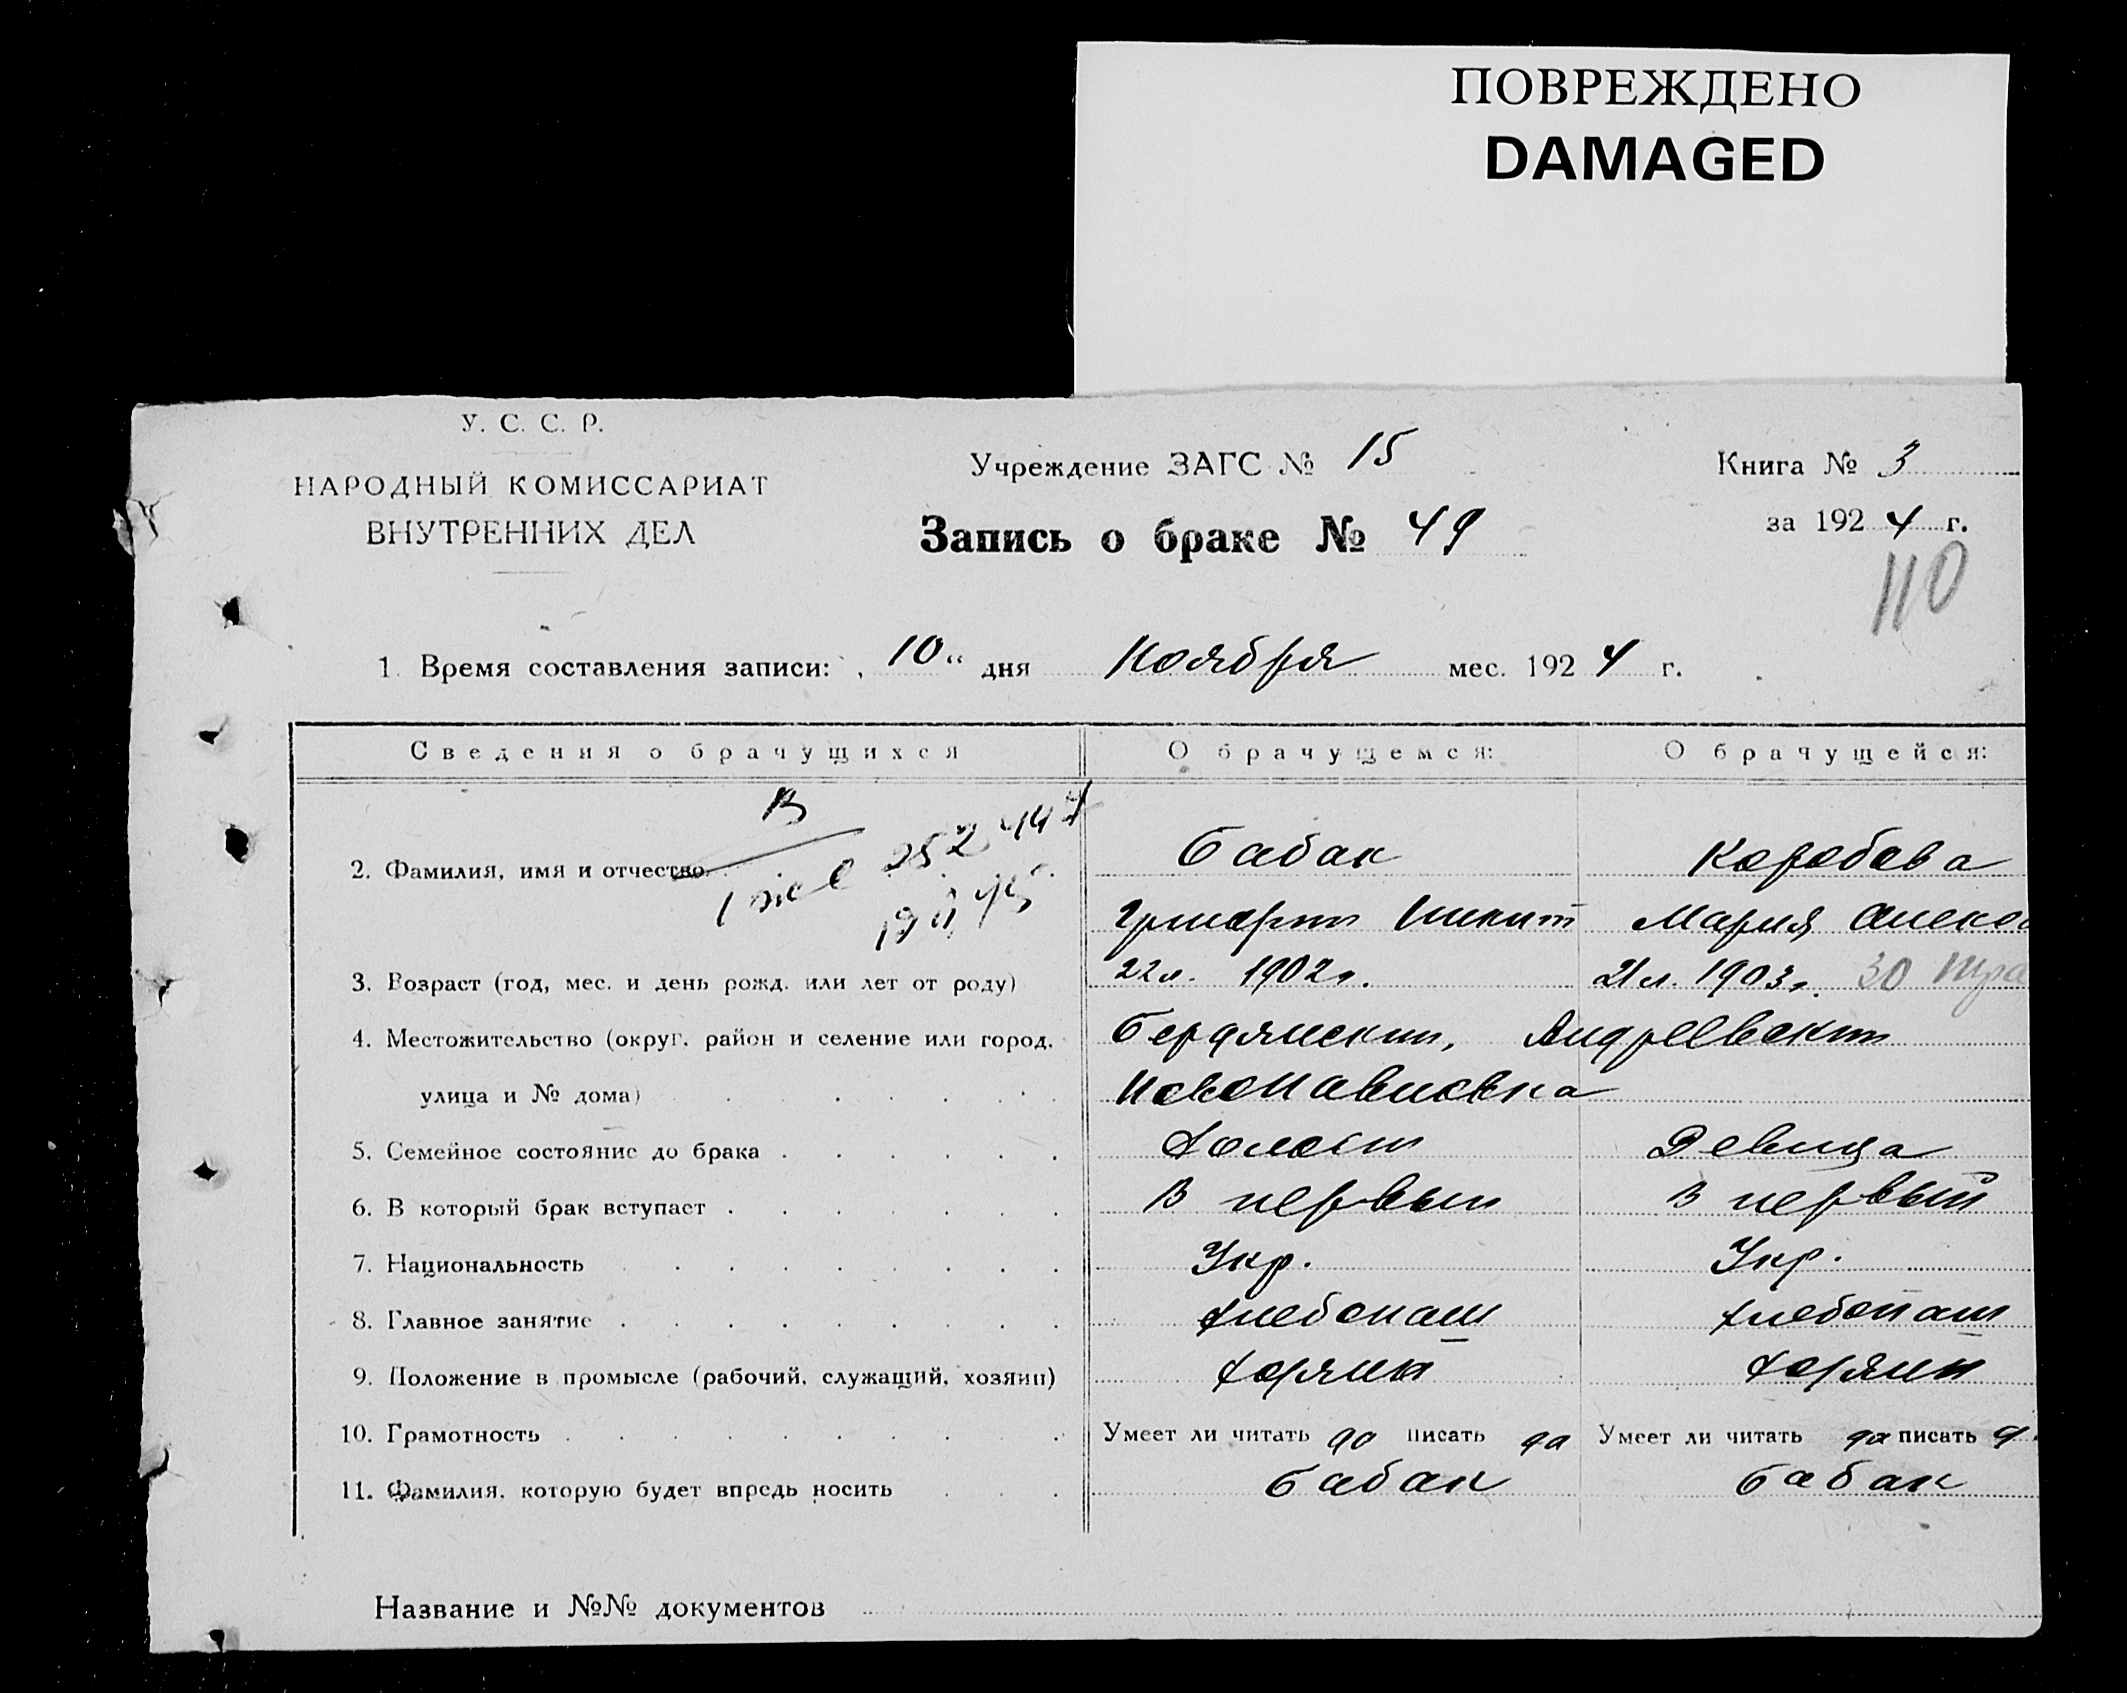 ПОВРЕЖДЕНО
DAMAGED
У. С. С. Р.
НАРОДНЫЙ КОМИССАРИАТ
ВНУТРЕННИХ ДЕЛ
Учреждение ЗАГС № 15
Книга № 3
Запись о браке № 49
за 1924 г.
110
1. Время составления записи: „10“ дня Ноября мес. 1924 г.
Сведения о брачущихся О брачущемся: О брачущейся:
2. Фамилия, имя и отчество Бабак Коробова
Мария Алексе
3. Возраст (год, мес. и день рожд. или лет от роду) 22 л. 1902 г. 21 л. 1903 г. 30
4. Местожительство (округ, район и селение или город, Бердянский, Андреевский
улица и № дома) Новопавловка
5. Семейное состояние до брака Холост Девица
6. В который брак вступает В первый В первый
7. Национальность Укр. Укр.
8. Главное занятие хлебопаш хлебопаш
9. Положение в промысле (рабочий, служащий, хозяин)
10. Грамотность Умеет ли читать да писать да Умеет ли читать да писать д
11. Фамилия, которую будет впредь носить Бабак Бабак
Название и №№ документов